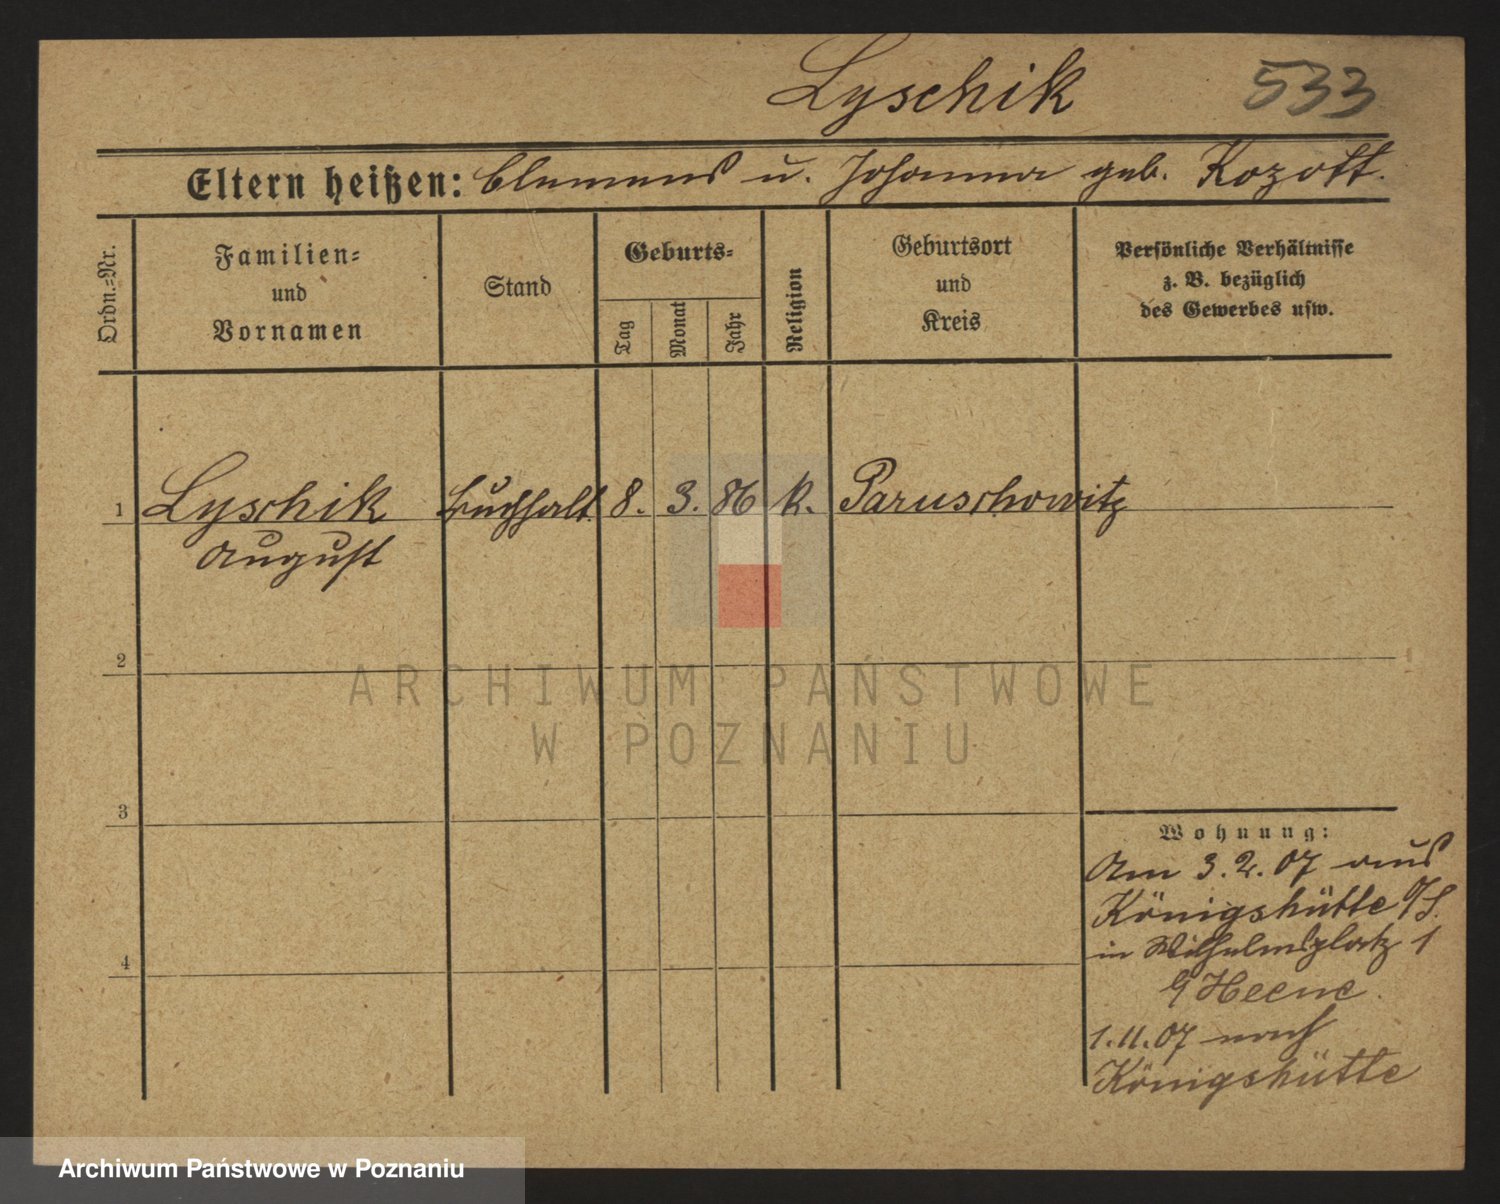 Lyschik 533
Eltern heißen: Clemens u. Johanna geb. Kozott.
Ordn.-Nr.
Familien-
und
Vornamen
Stand
Geburts-
Tag
Monat
Jahr
Religion
Geburtsort
und
Kreis
Persönliche Verhältnisse
z. B. bezüglich
des Gewerbes usw.
1 Lyschik Buchhalt. 8. 3. 86 k. Paruschowitz
August
2
ARCHIWUM PAŃSTWOWE
W POZNANIU
3
Wohnung:
Am 3.2.07 aus
Königshütte O/S.
in Wilhelmsplatz 1
b/ Heene.
4
1.11.07 nach
Königshütte
Archiwum Państwowe w Poznaniu